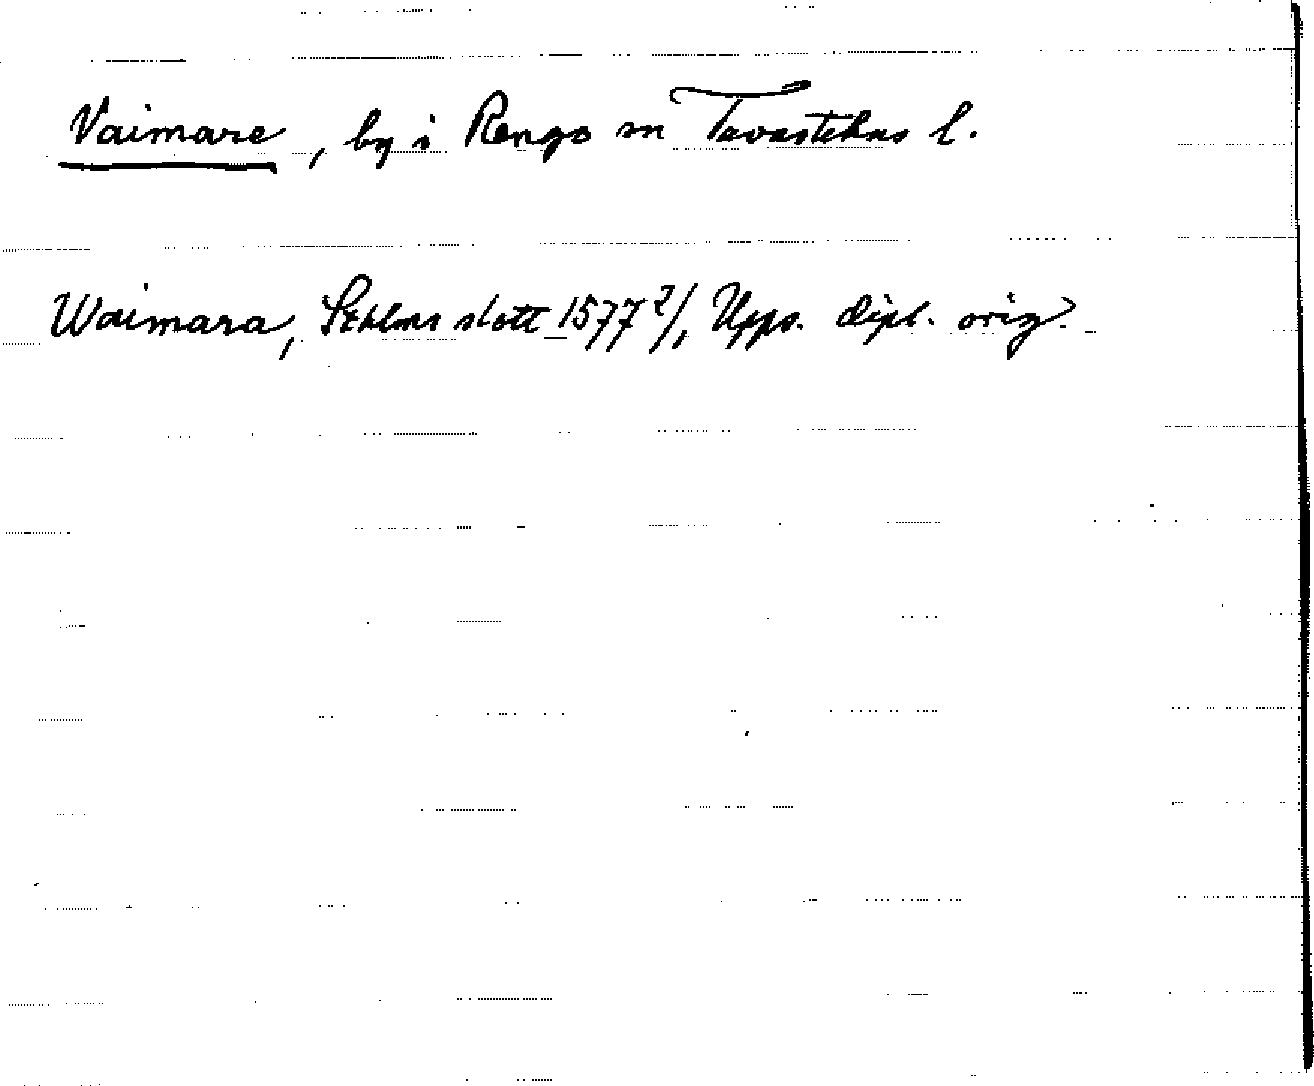 Vaimare, by i Rengo sn Tavastehus l.
Waimara, Sthlms slott 1577 2/1, Upps. dipl. orig.